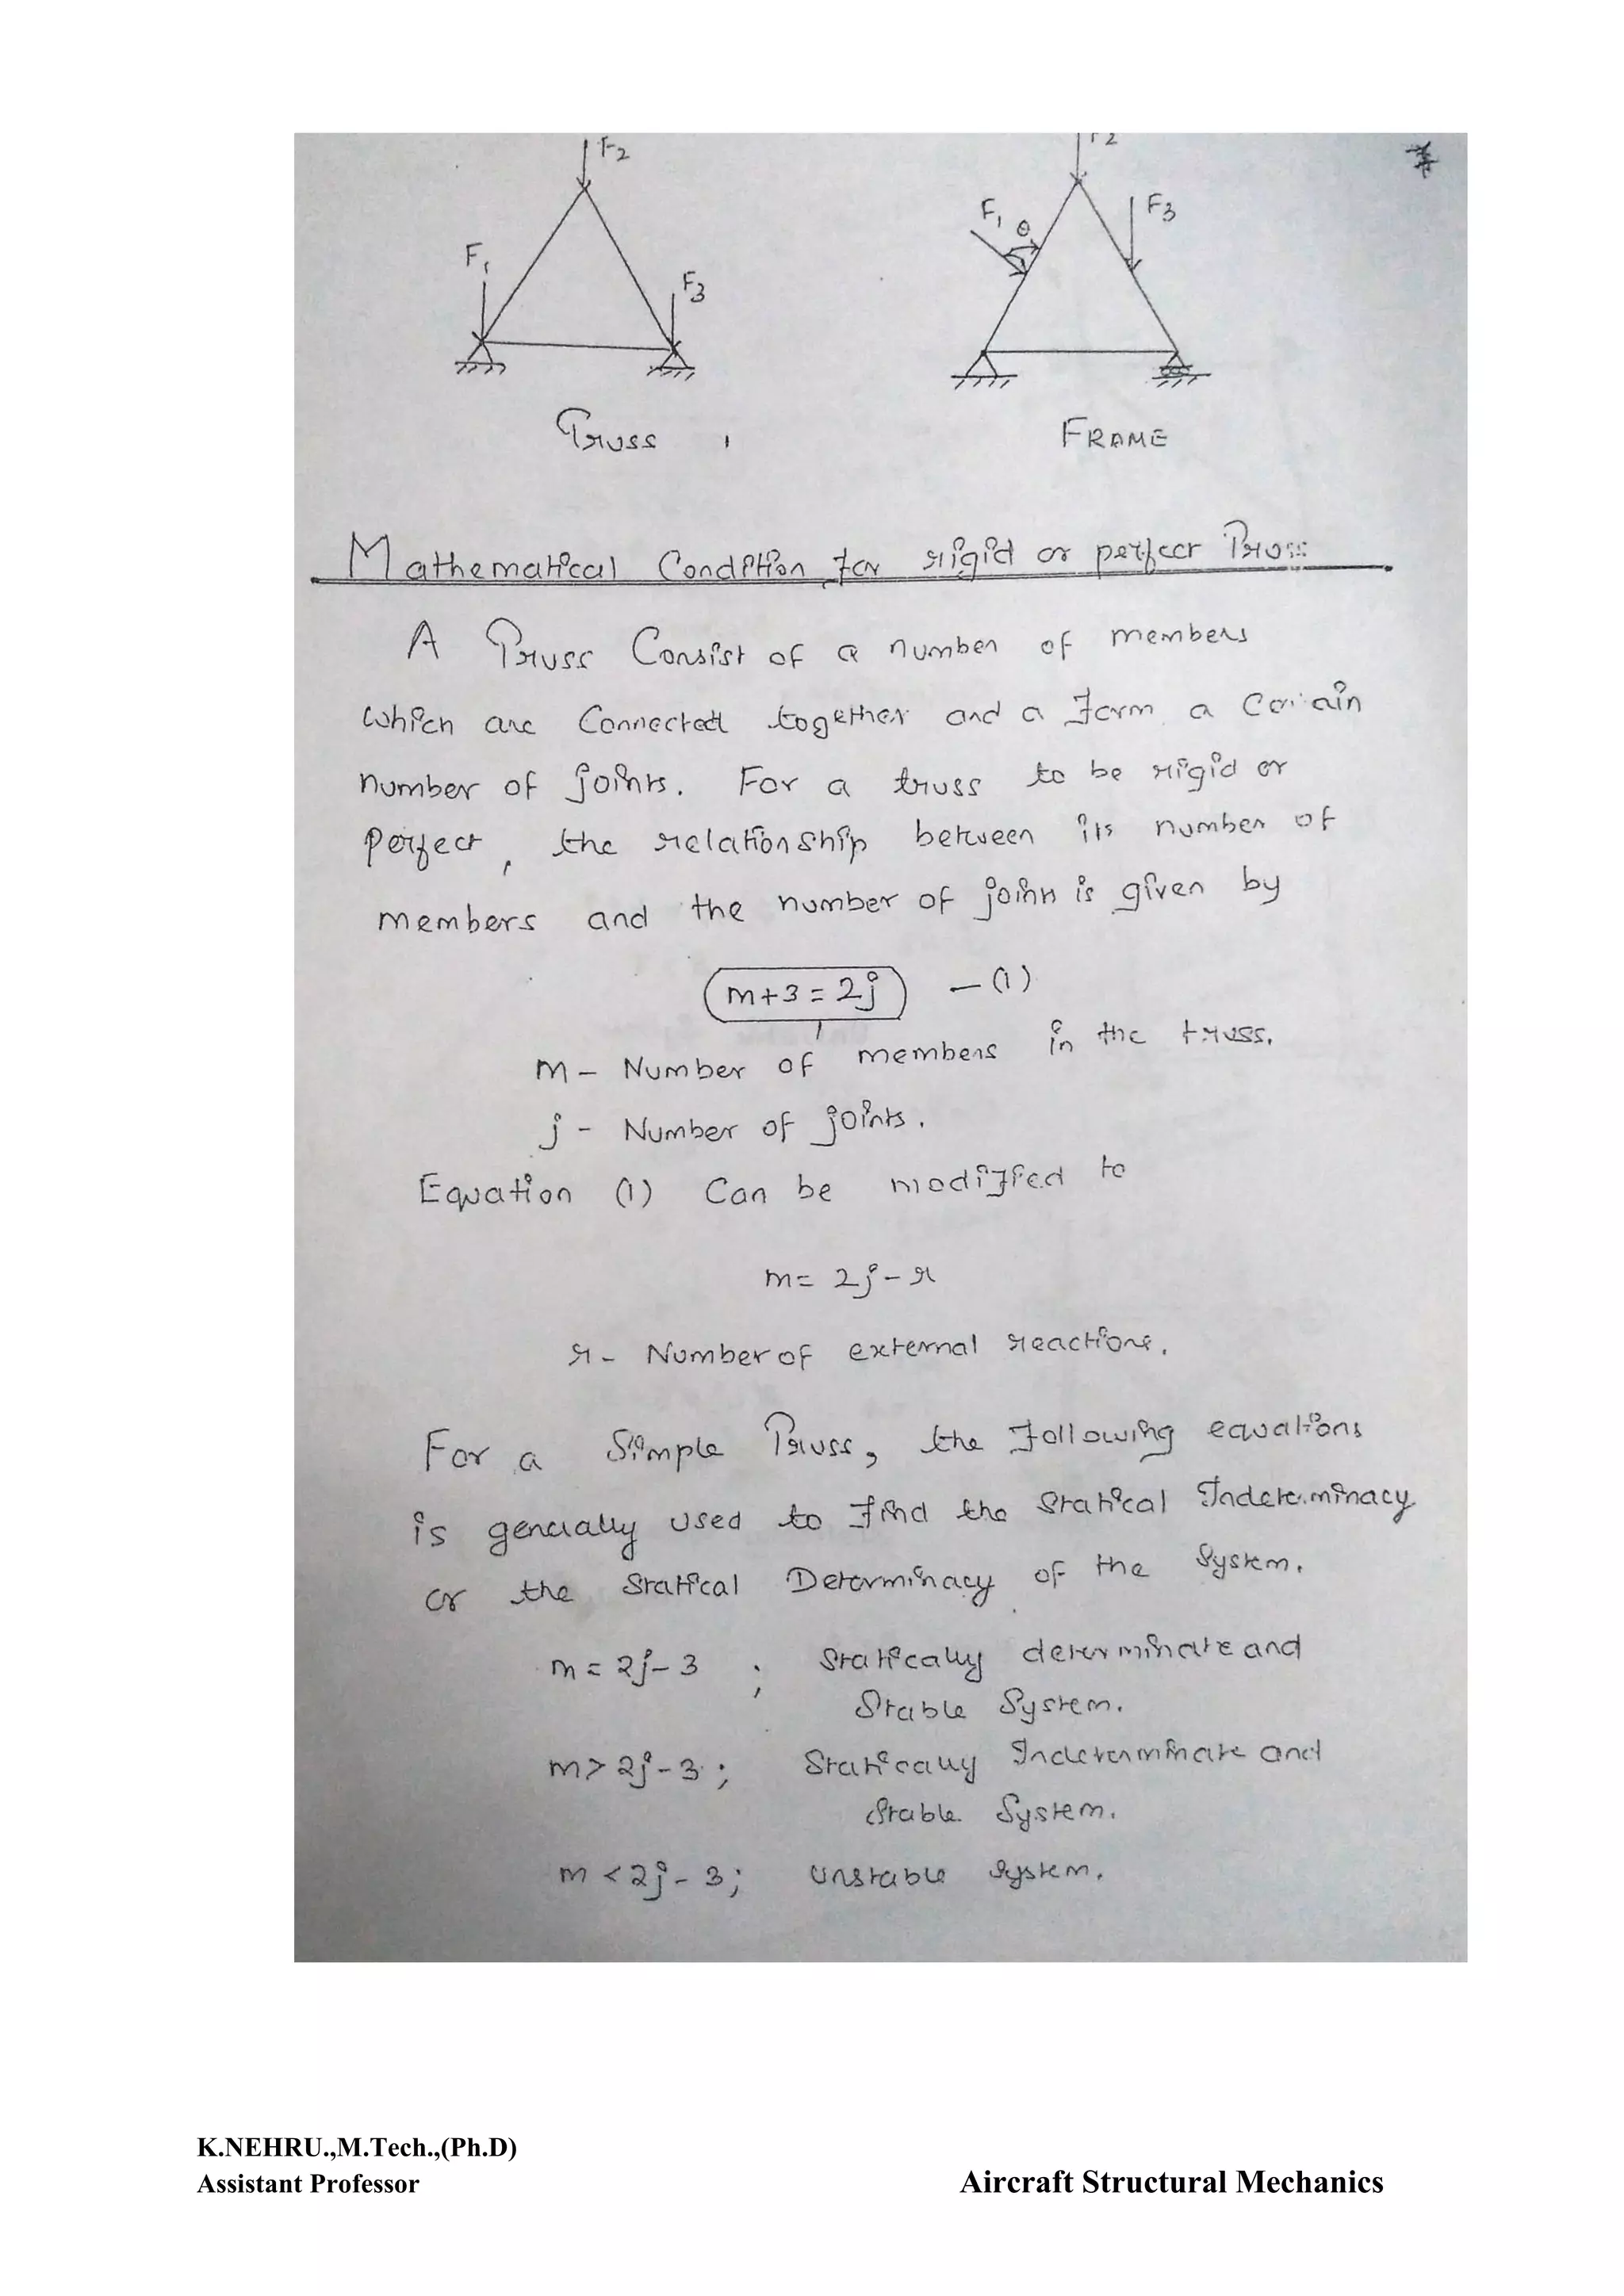 F2
F1
F3
Truss
F2
F1 θ
F3
FRAME
Mathematical Condition for rigid or perfect Truss
A Truss Consist of a number of members
which are Connected together and a form a Certain
number of joints. For a truss to be rigid or
perfect, the relationship between its number of
members and the number of joints is given by
m+3 = 2j — (1)
m - Number of members in the truss.
j - Number of joints.
Equation (1) Can be modified to
m = 2j - r
r - Number of external reactions.
For a Simple Truss, the following equations
is generally used to find the Statical Indeterminacy
or the Statical Determinacy of the System.
m = 2j - 3 ; Statically determinate and
Stable System.
m > 2j - 3 ; Statically Indeterminate and
Stable System.
m < 2j - 3 ; Unstable System.
K.NEHRU.,M.Tech.,(Ph.D)
Assistant Professor
Aircraft Structural Mechanics